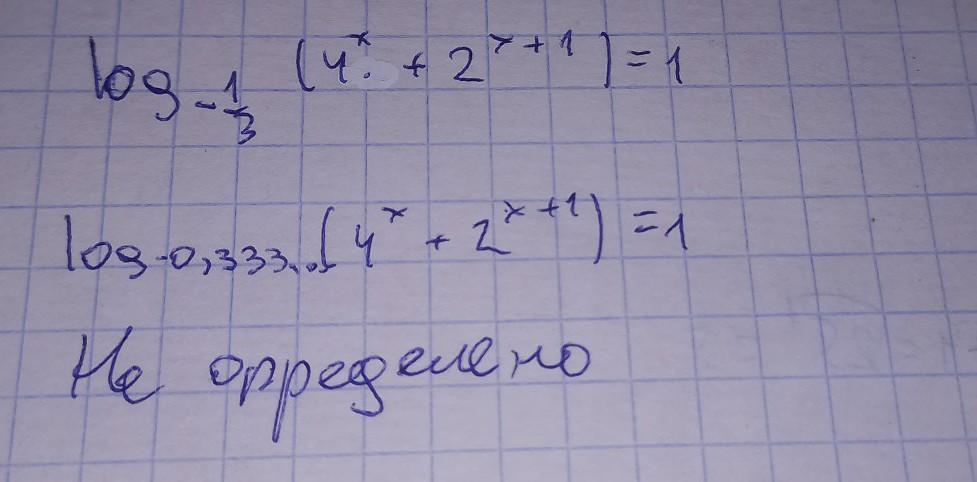 log₋₁/₃ (4ˣ + 2ˣ⁺¹) = 1
log₋₀,₃₃₃... (4ˣ + 2ˣ⁺¹) = 1
Не определено